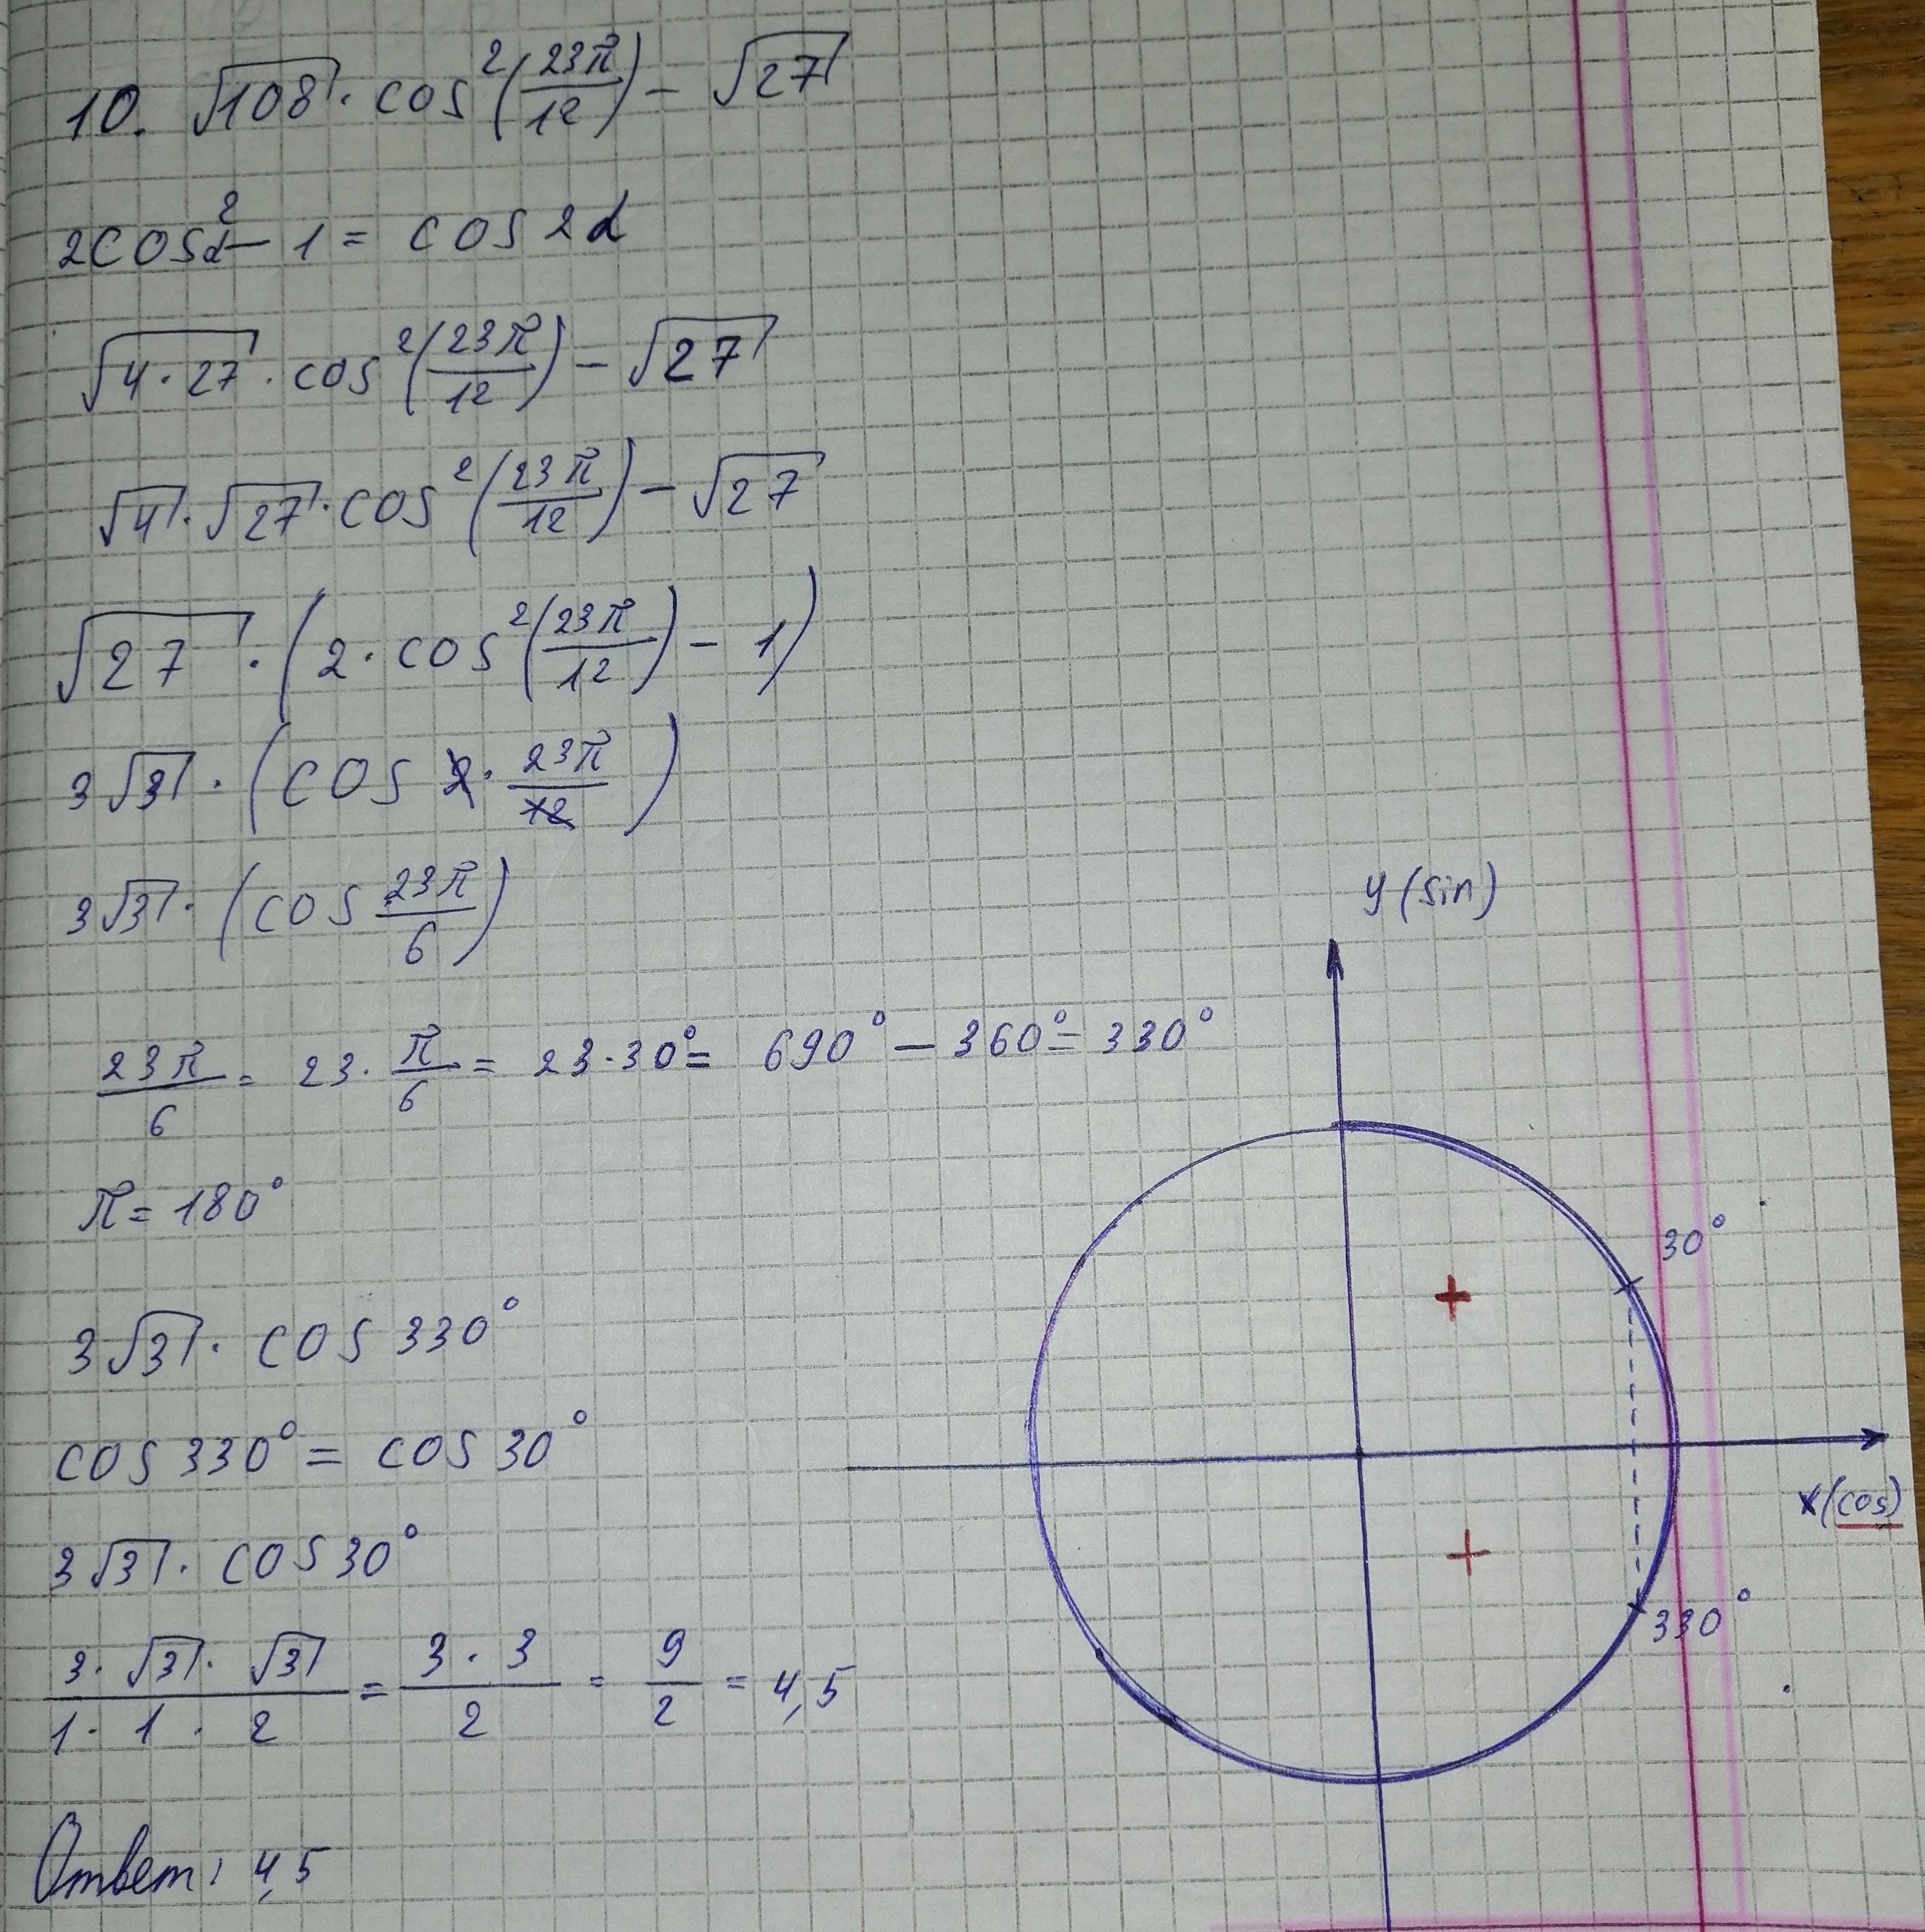 10. √108 · cos²(23π/12) − √27
2cos²α − 1 = cos2α
√4·27 · cos²(23π/12) − √27
√4 · √27 · cos²(23π/12) − √27
√27 · (2 · cos²(23π/12) − 1)
3√3 · (cos 2 · 23π/12)
3√3 · (cos 23π/6)
y (sin)
23π/6 = 23 · π/6 = 23·30° = 690° − 360° = 330°
π = 180°
30°
+
3√3 · cos 330°
cos 330° = cos 30°
x (cos)
+
3√3 · cos 30°
330°
3·√3·√3/1·1·2 = 3·3/2 = 9/2 = 4,5
Ответ: 4,5